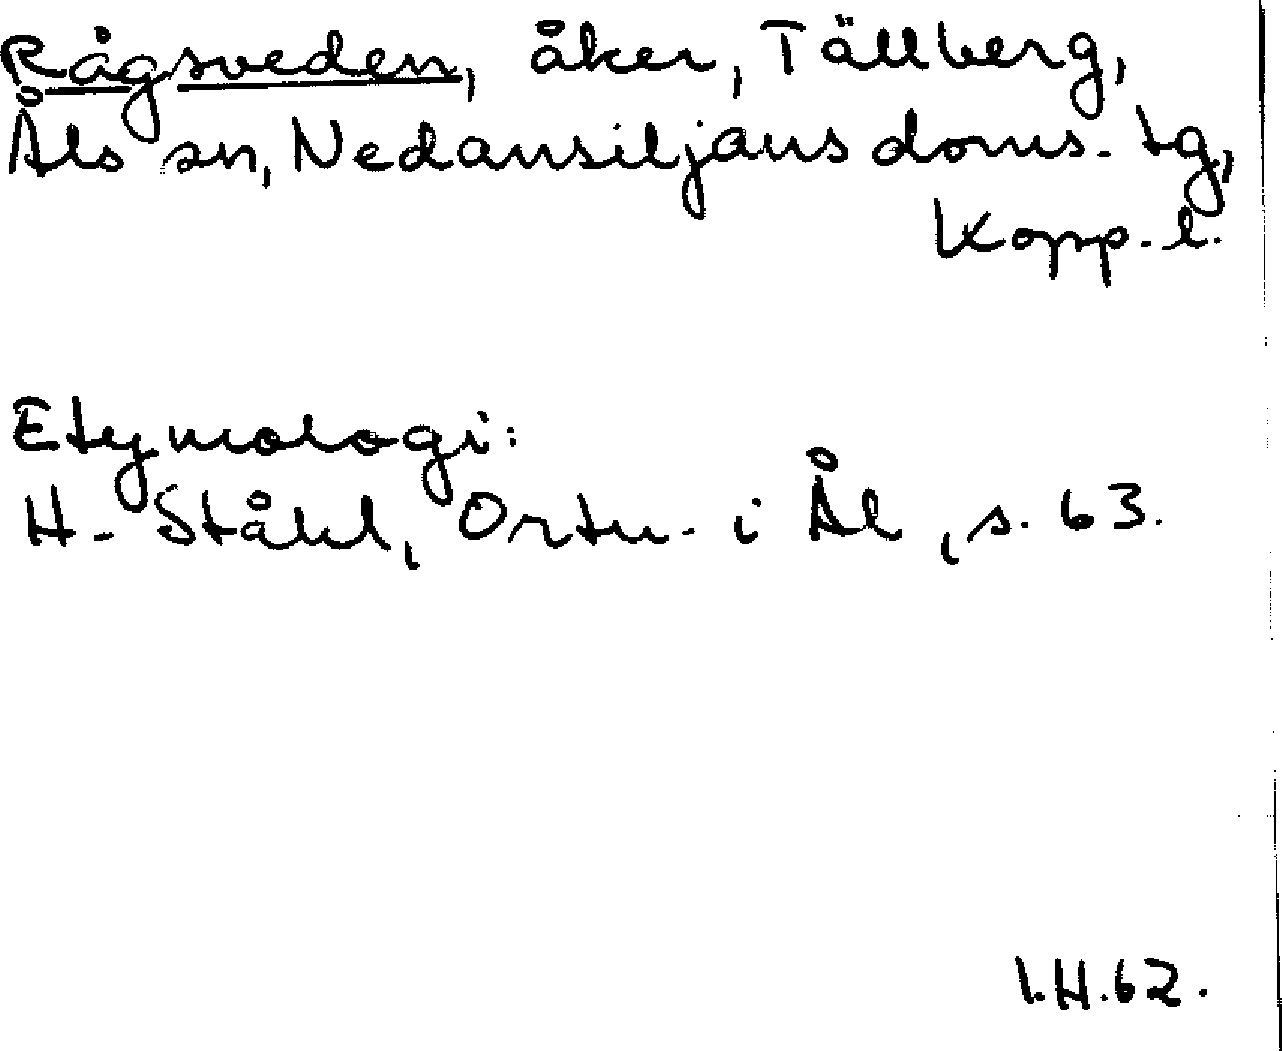 Rågsveden, åker, Tällberg,
Åls sn, Nedansiljans doms. tg,
Kopp. l.
Etymologi:
H. Ståhl, Ortn. i Ål, s. 63.
I.H.62.